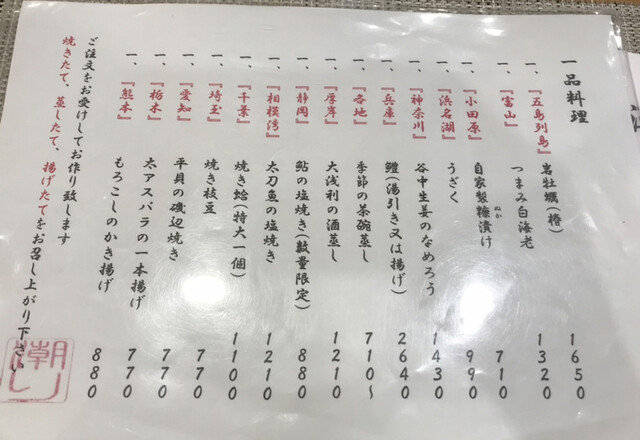 一品料理
一、『五島列島』岩牡蠣(椿) 1650
一、『富山』つまみ白海老 1320
一、『小田原』自家製糠漬け 710
ぬか
一、『浜名湖』うざく 990
一、『神奈川』谷中生姜のなめろう 1430
一、『兵庫』鱧(湯引き又は揚げ) 2640
一、『各地』季節の茶碗蒸し 710~
一、『厚岸』大浅利の酒蒸し 1210
一、『静岡』鮎の塩焼き(数量限定) 880
一、『相模湾』太刀魚の塩焼き 1210
一、『千葉』焼き蛤(特大一個) 1100
一、『埼玉』焼き枝豆 770
一、『愛知』平貝の磯辺焼き 770
一、『栃木』太アスパラの一本揚げ 770
一、『熊本』もろこしのかき揚げ 880
ご注文をお受けしてお作り致します
焼きたて、蒸したて、揚げたてをお召し上がり下さい